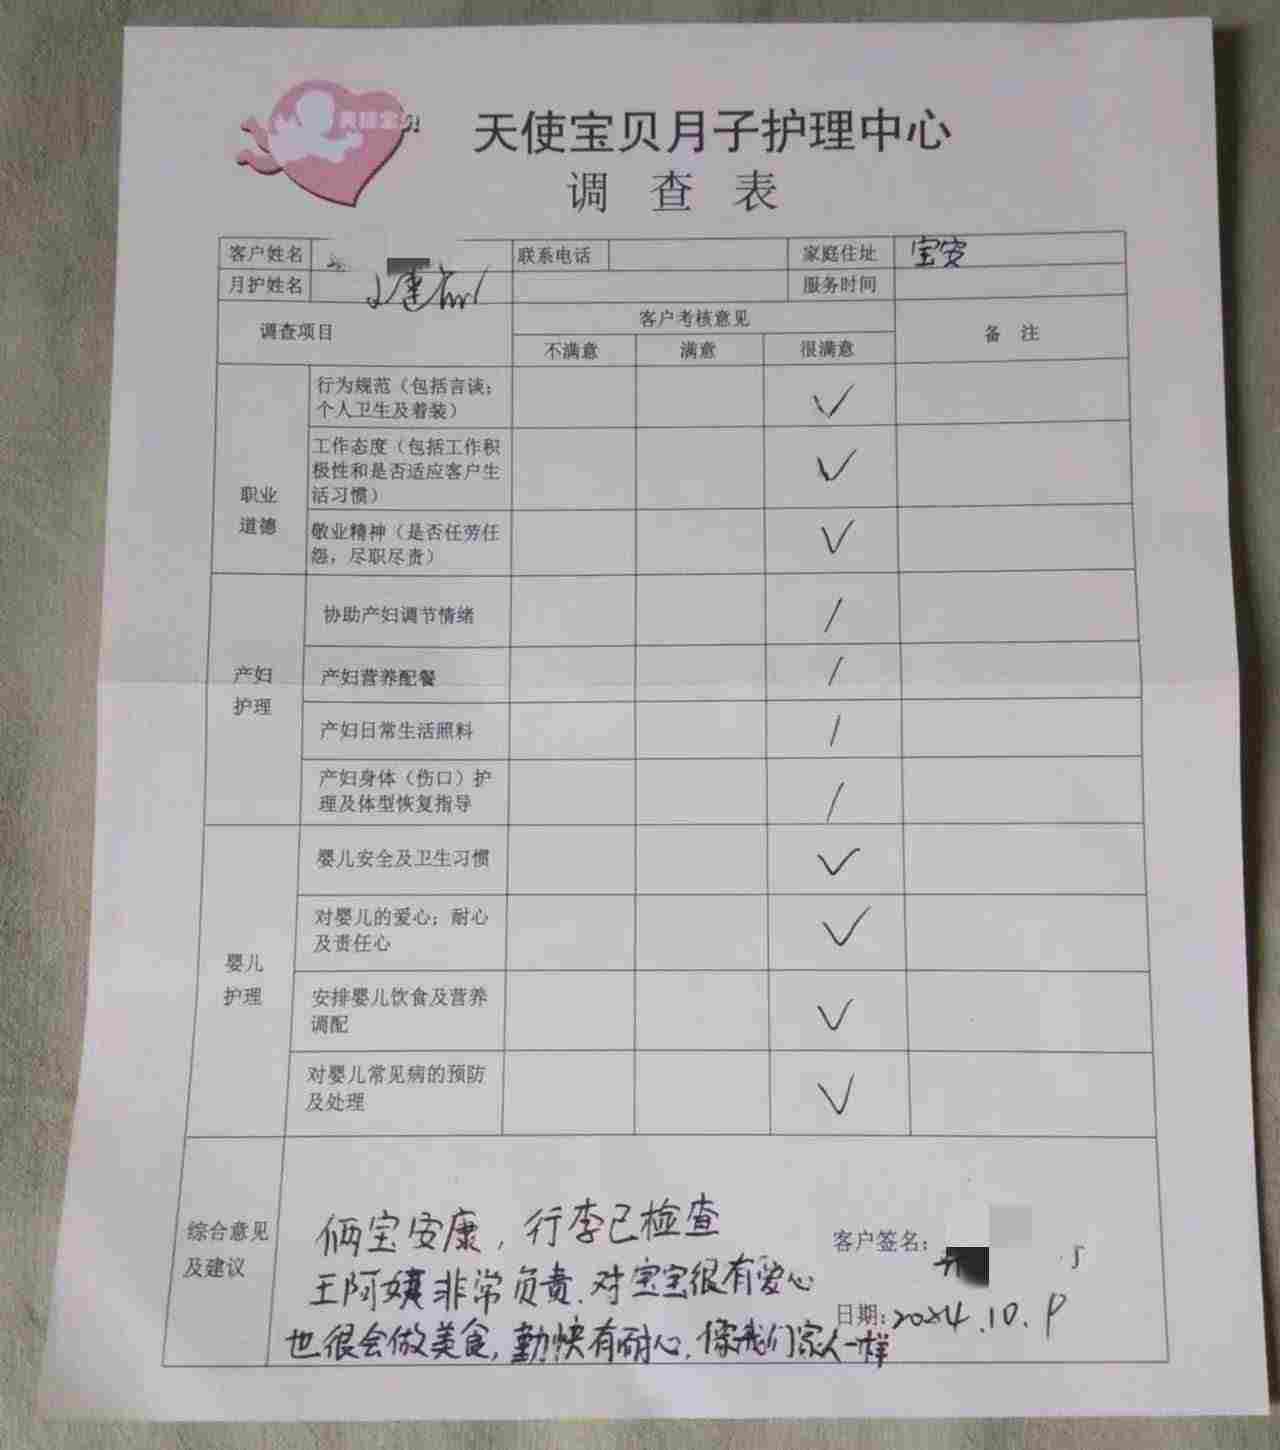 天使宝贝
天使宝贝月子护理中心
调 查 表
客户姓名 联系电话 家庭住址 宝安
月护姓名 服务时间
调查项目 客户考核意见 备 注
不满意 满意 很满意
职业
道德
行为规范（包括言谈；
个人卫生及着装） ✓
工作态度（包括工作积
极性和是否适应客户生
活习惯） ✓
敬业精神（是否任劳任
怨，尽职尽责） ✓
产妇
护理
协助产妇调节情绪 /
产妇营养配餐 /
产妇日常生活照料 /
产妇身体（伤口）护
理及体型恢复指导 /
婴儿
护理
婴儿安全及卫生习惯 ✓
对婴儿的爱心；耐心
及责任心 ✓
安排婴儿饮食及营养
调配 ✓
对婴儿常见病的预防
及处理 ✓
综合意见
及建议
俩宝安康，行李已检查
王阿姨非常负责.对宝宝很有爱心
也很会做美食，勤快有耐心.像我们家人一样
客户签名：
日期：2024.10.9